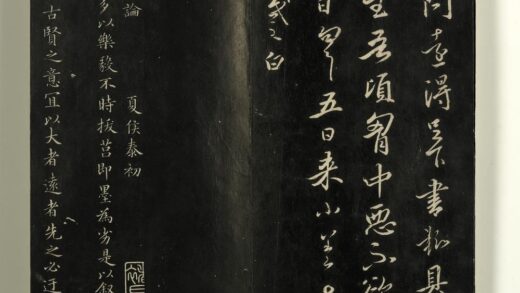 問得足下書猶具
吾頃胸中惡不欲
日匆五日来小差
羲之白
論 夏侯泰初
多以樂毅不時拔莒即墨為劣是以叙
古賢之意宜以大者遠者先之必迂